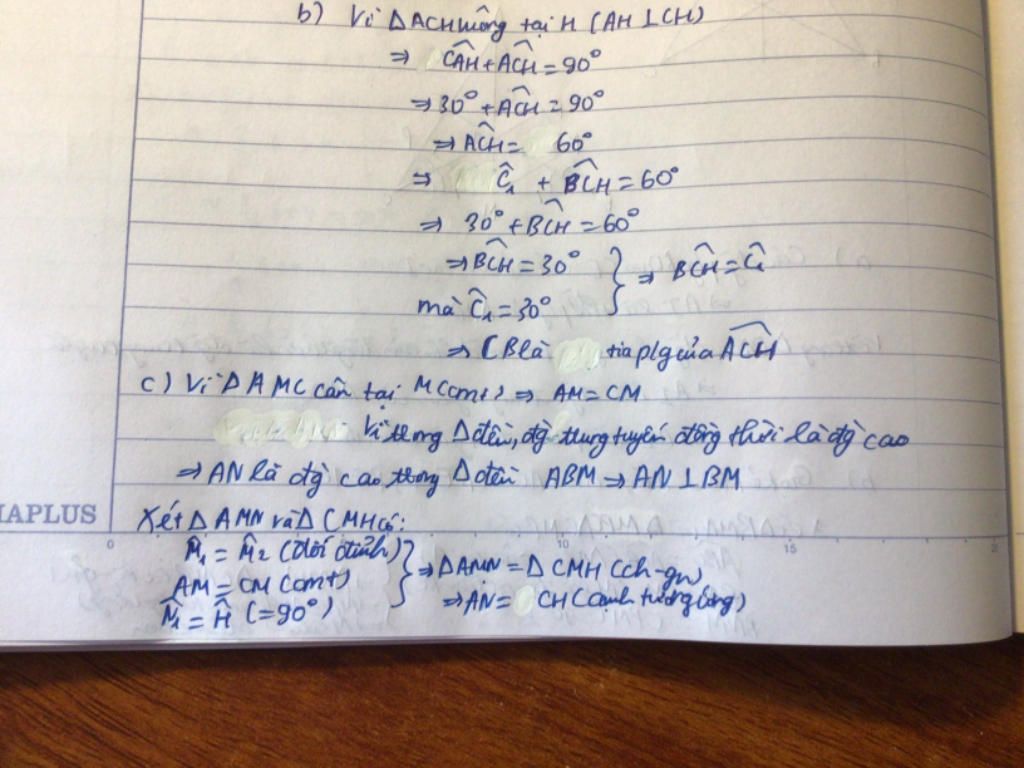 b) Vì ΔACH vuông tại H (AH⊥CH)
⇒ CÂH + AĈH = 90°
⇒ 30° + AĈH = 90°
⇒ AĈH = 60°
⇒ Ĉ₁ + BĈH = 60°
⇒ 30° + BĈH = 60°
⇒ BĈH = 30° } ⇒ BĈH = Ĉ₁
mà Ĉ₁ = 30°
⇒ CB là tia p/g của AĈH
c) Vì ΔAMC cân tại M (cmt) ⇒ AM = CM
Vì trong Δ đều, đg trung tuyến đồng thời là đg cao
⇒ AN là đg cao trong Δ đều ABM ⇒ AN ⊥ BM
Xét ΔAMN và ΔCMH có:
M̂₁ = M̂₂ (đối đỉnh)
AM = CM (cmt) } ⇒ ΔAMN = ΔCMH (ch-gn)
N̂₁ = Ĥ (=90°) ⇒ AN = CH (cạnh tương ứng)
IAPLUS
0 10 15 20